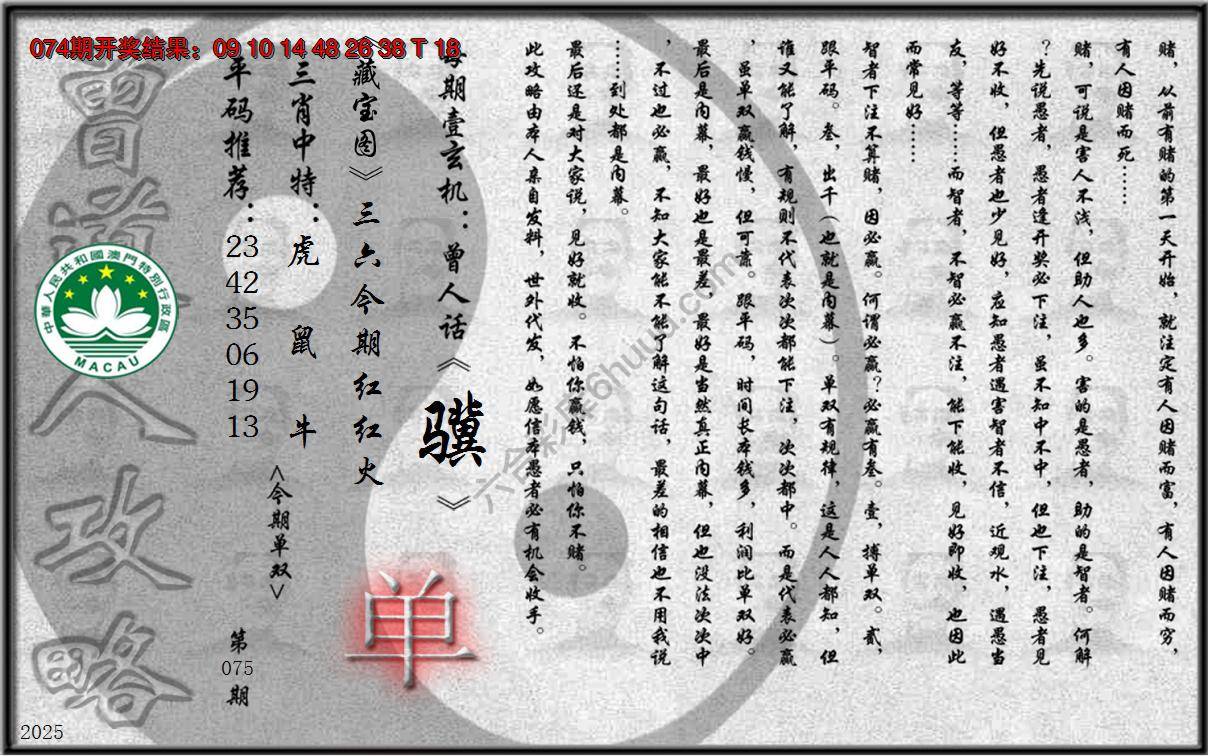 074期开奖结果：09 10 14 48 26 38 T 18
赌，从前有赌的第一天开始，就注定有人因赌而富，有人因赌而穷，
有人因赌而死……
赌，可说是害人不浅，但助人也多。害的是愚者，助的是智者。何解
？先说愚者，愚者逢开奖必下注，虽不知中不中，但也下注，愚者见
好不收，但愚者也少见好，应知愚者遇害智者不信，近观水，遇愚当
友，等等……而智者，不智必赢不注，能下能收，见好即收，也因此
而常见好……
智者下注不算赌，因必赢。何谓必赢？必赢有叁。壹，搏单双。贰，
跟平码。叁，出千（也就是内幕）。单双有规律，这是人人都知，但
谁又能了解，有规则不代表次次都能下注，次次都中。而是代表必赢
，虽单双赢钱慢，但可靠。跟平码，时间长本钱多，利润比单双好。
最后是内幕，最好也是最差，最好是当然真正内幕，但也没法次次中
，不过也必赢，不知大家能不能了解这句话，最差的相信也不用我说
……到处都是内幕。
最后还是对大家说，见好就收。不怕你赢钱，只怕你不赌。
此攻略由本人亲自发料，世外代发，如愿信本愚者必有机会收手。
每期壹玄机：曾人话《骥》
《藏宝图》三六今期红红火
三肖中特：虎 鼠 牛
<今期单双>
单
平码推荐：23 42 35 06 19 13
第075期
曾道人攻略
中華人民共和國澳門特別行政區
MACAU
六合彩库6huuu.com
2025